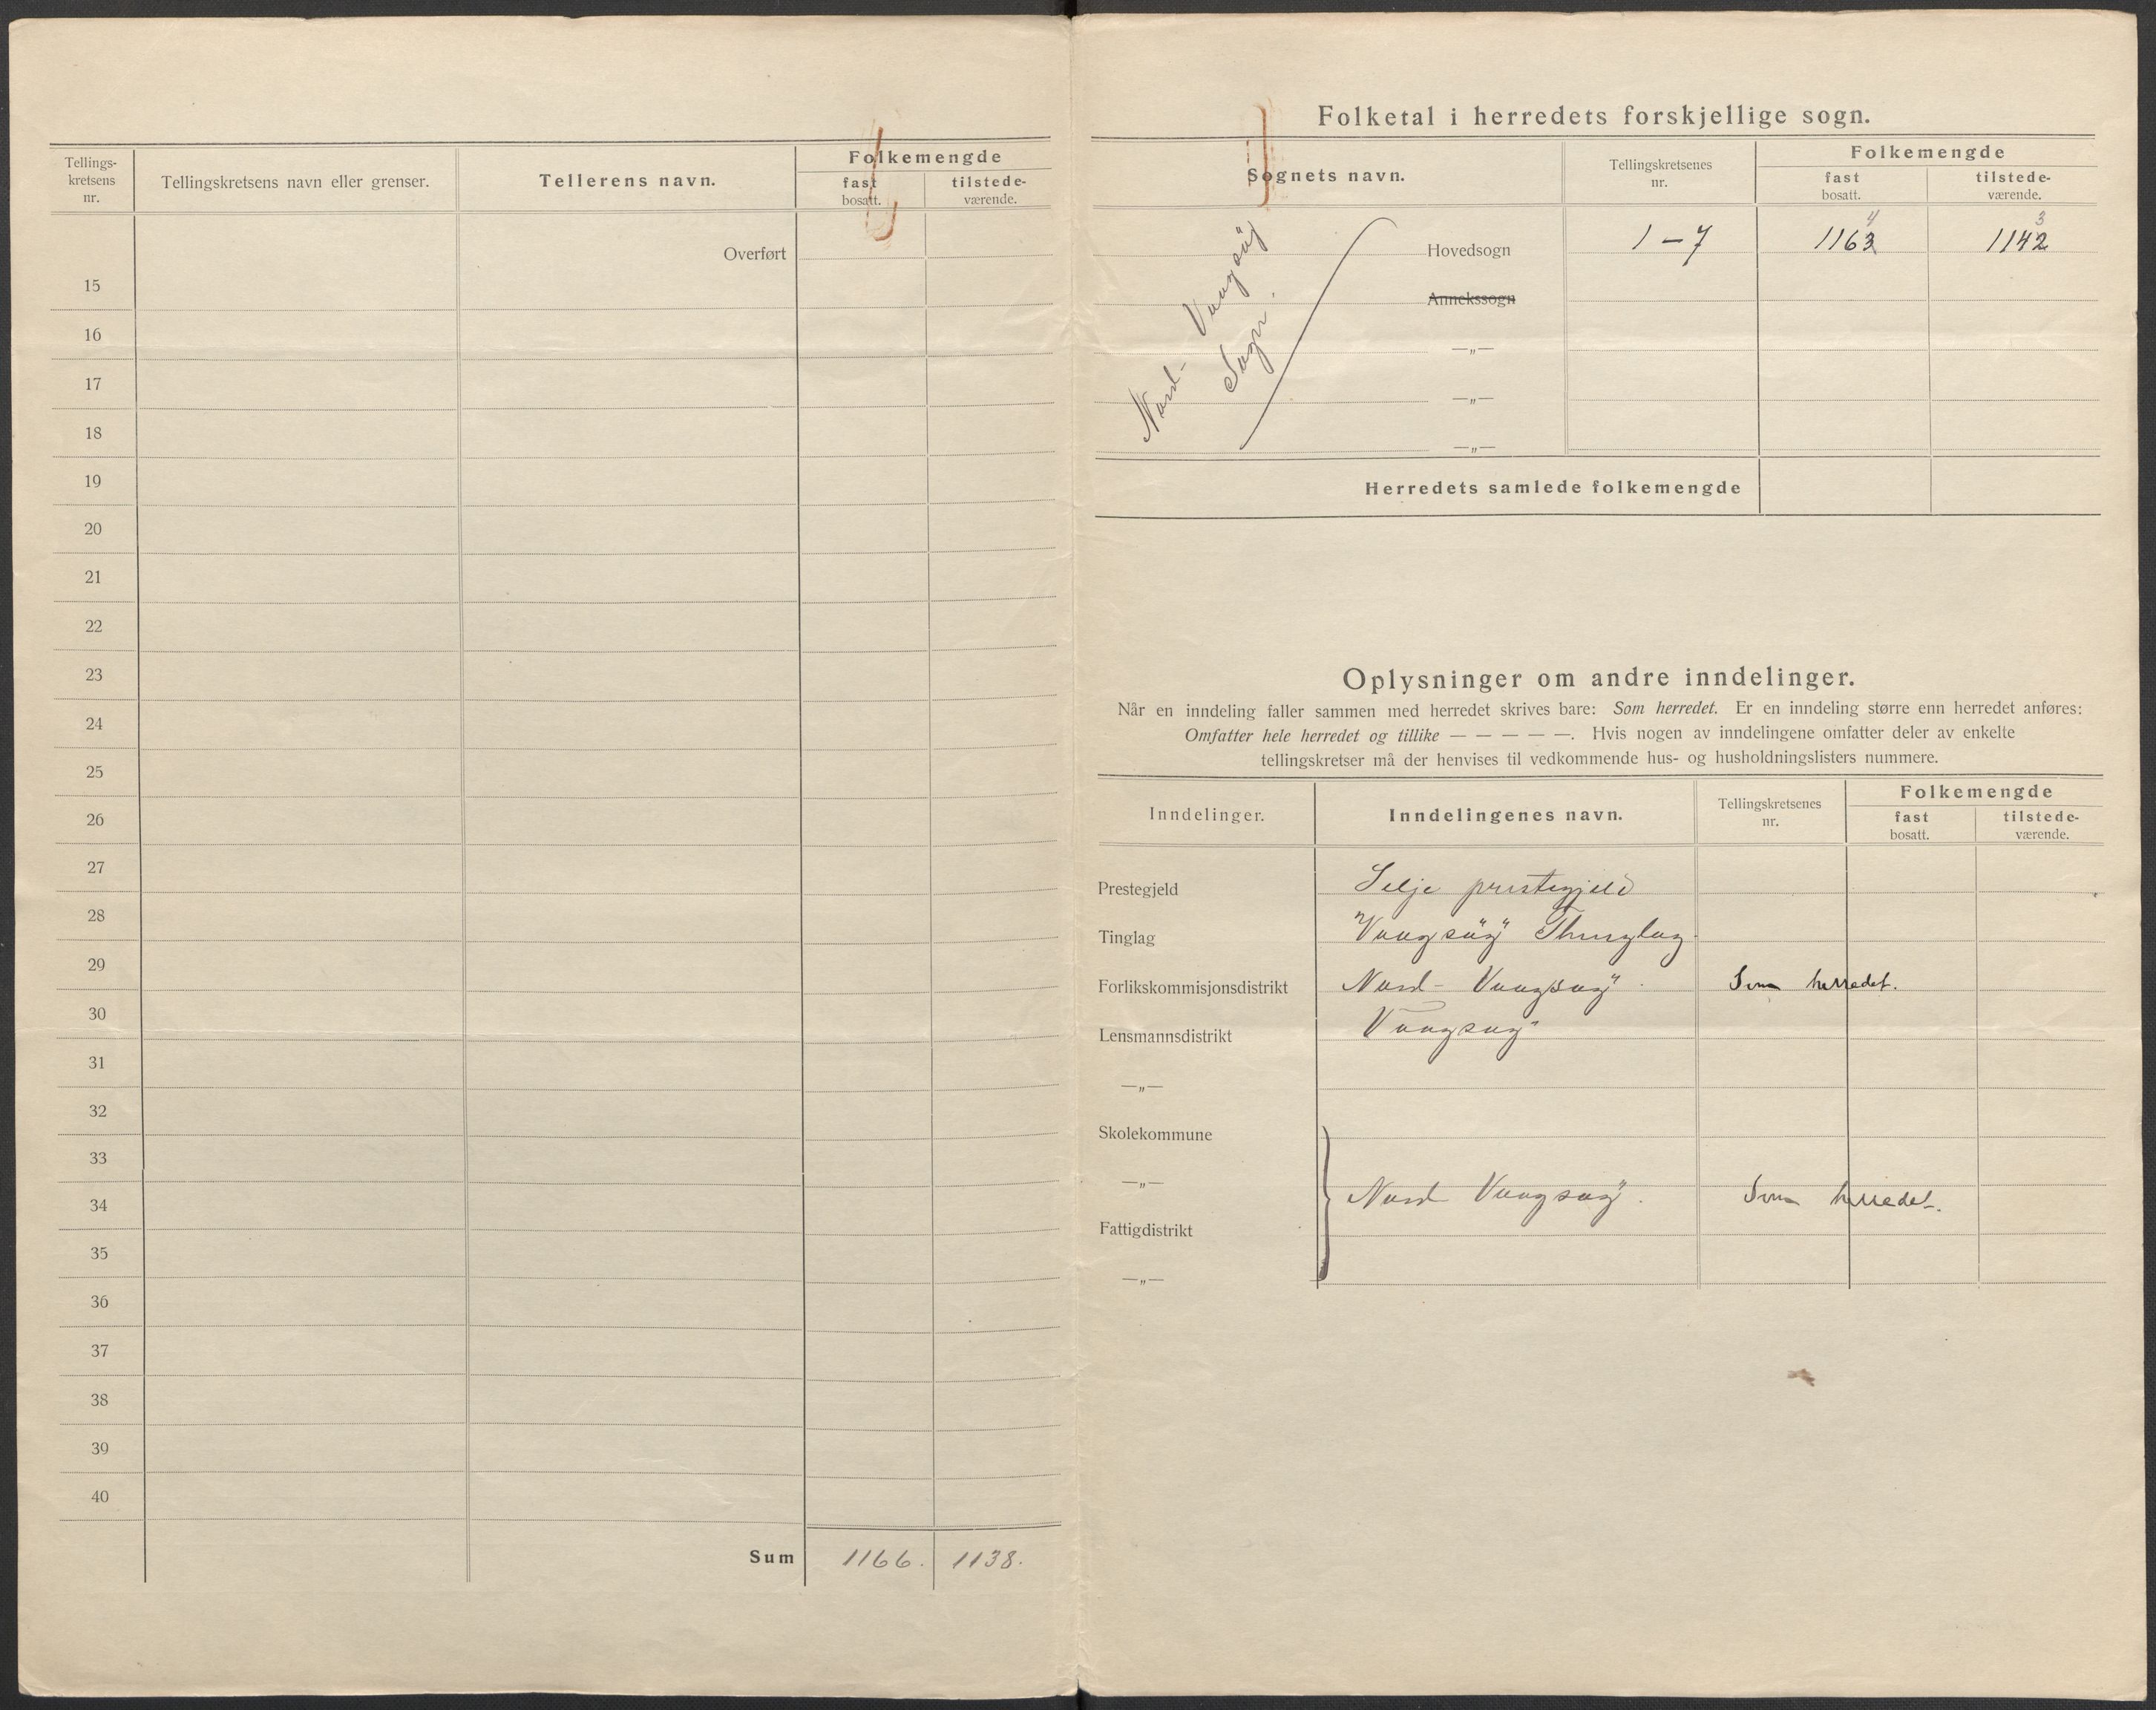 Tellings-
kretsens
nr.
Tellingskretsens navn eller grenser.
Tellerens navn.
Folkemengde
fast
bosatt.
tilstede-
værende.
Overført
15
16
17
18
19
20
21
22
23
24
25
26
27
28
29
30
31
32
33
34
35
36
37
38
39
40
Sum 1166. 1138.
Folketal i herredets forskjellige sogn.
Sognets navn.
Tellingskretsenes
nr.
Folkemengde
fast
bosatt.
tilstede-
værende.
4 3
Hovedsogn 1-7 1163 1142
Nord- Vaagsöÿ
Sogn.
Annekssogn
—„—
—„—
—„—
Herredets samlede folkemengde
Oplysninger om andre inndelinger.
Når en inndeling faller sammen med herredet skrives bare: Som herredet. Er en inndeling større enn herredet anføres:
Omfatter hele herredet og tillike — — — — —. Hvis nogen av inndelingene omfatter deler av enkelte
tellingskretser må der henvises til vedkommende hus- og husholdningslisters nummere.
Inndelinger.
Inndelingenes navn.
Tellingskretsenes
nr.
Folkemengde
fast
bosatt.
tilstede-
værende.
Prestegjeld Selje prestegjeld
Tinglag Vaagsöÿ Thinglag
Forlikskommisjonsdistrikt Nord- Vaagsöÿ. Som herredet.
Lensmannsdistrikt Vaagsöÿ
—„—
Skolekommune
—„—
Nord Vaagsöÿ. Som herredet.
Fattigdistrikt
—„—